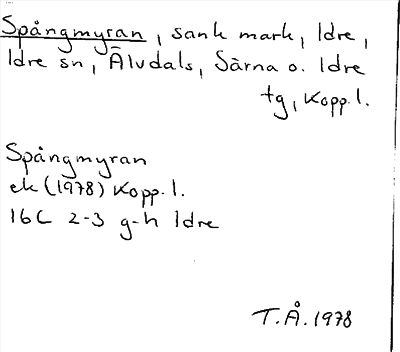 Spångmyran, sank mark, Idre,
Idre sn, Älvdals, Särna o. Idre
tg, Kopp. l.
Spångmyran
ek (1978) Kopp. l.
16C 2-3 g-h Idre
T.Å. 1978